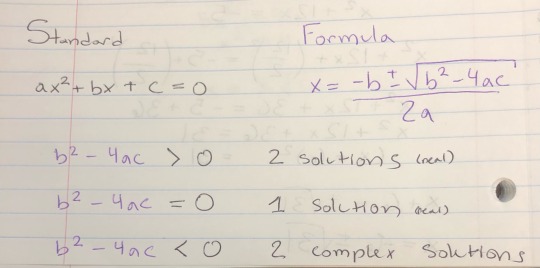 Standard Formula
ax² + bx + c = 0 x = -b ± √b² - 4ac / 2a
b² - 4ac > 0 2 solutions (real)
b² - 4ac = 0 1 solution (real)
b² - 4ac < 0 2 complex solutions